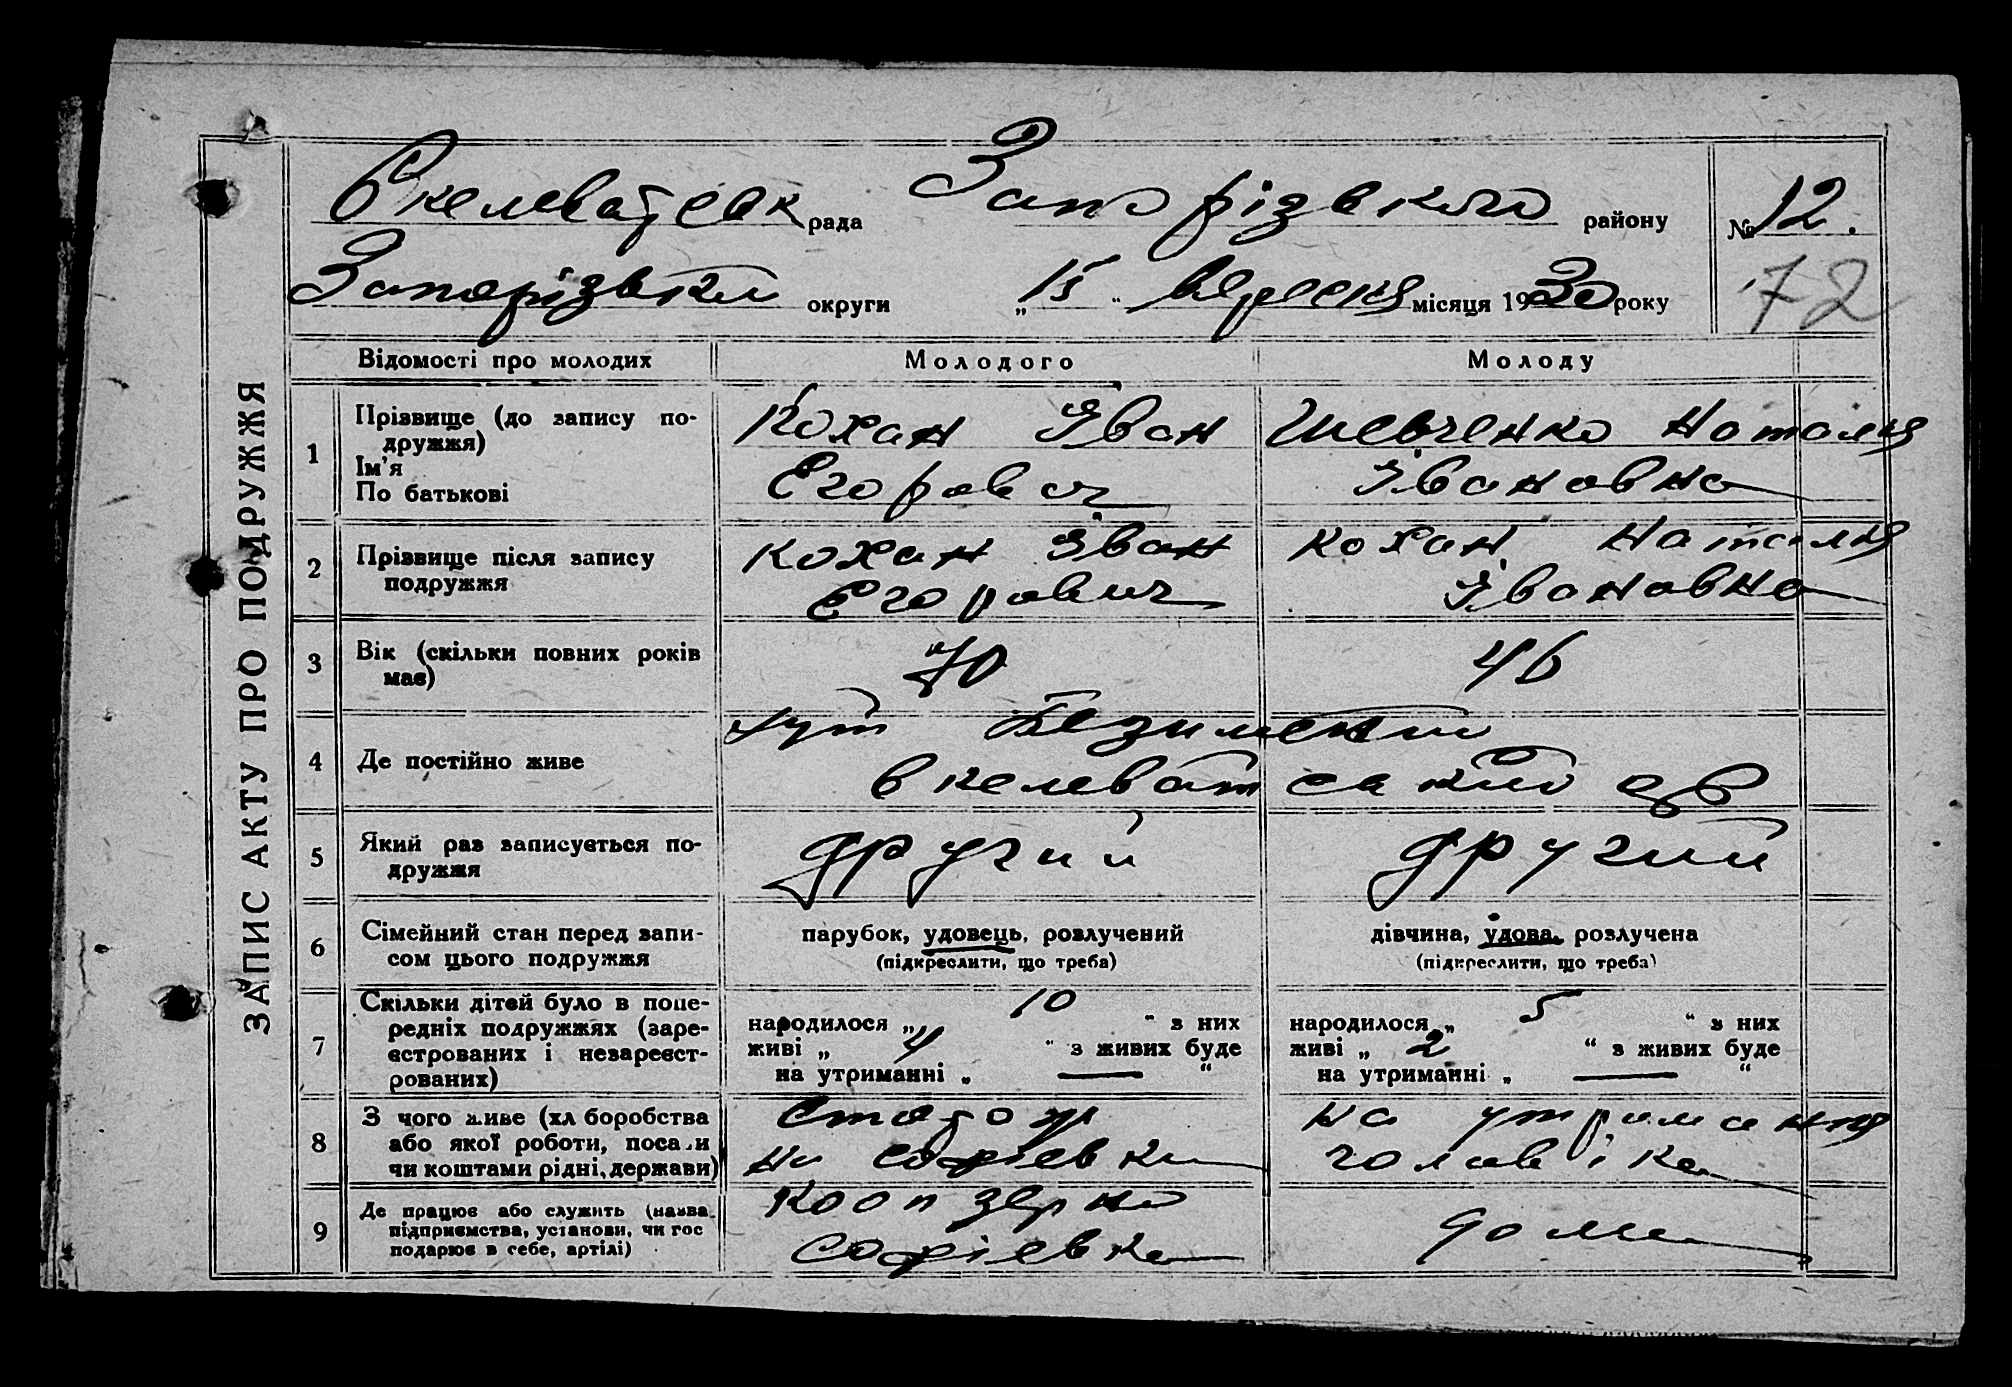 ЗАПИС АКТУ ПРО ПОДРУЖЖЯ
Скелеватсвк рада Запорізького району № 12.
Запорізькки округи „ 15 “ вересня місяця 1930 року
72
Відомості про молодих Молодого Молоду
1 Прізвище (до запису по-
дружжя)
Ім'я
По батькові
Кохан Іван
Егорович
Шевченко Наталия
Івановна
2 Прізвище після запису
подружжя
Кохан Іван
Егорович
Кохан Наталия
Івановна
3 Вік (скільки повних років
має)
70
46
4 Де постійно живе
хут
5 Який раз записується по-
дружжя
другий
другий
6 Сімейний стан перед запи-
сом цього подружжя
парубок, удовець, розлучений
(підкреслити, що треба)
дівчина, удова, розлучена
(підкреслити, що треба)
7 Скільки дітей було в попе-
редніх подружжях (заре-
єстрованих і незареєст-
рованих)
народилося „ 10 “ з них
живі „ 4 “ з живих буде
на утриманні „ — “
народилося „ 5 “ з них
живі „ 2 “ з живих буде
на утриманні „ — “
8 З чого живе (хліборобства
або якої роботи, посади
чи коштами рідні, держави)
на Софіевки
на утримання
чоловіка
9 Де працює або служить (назва
підприємства, установи, чи гос
подарює в себе, артілі)
Кооп зерно
Софіевка
дома